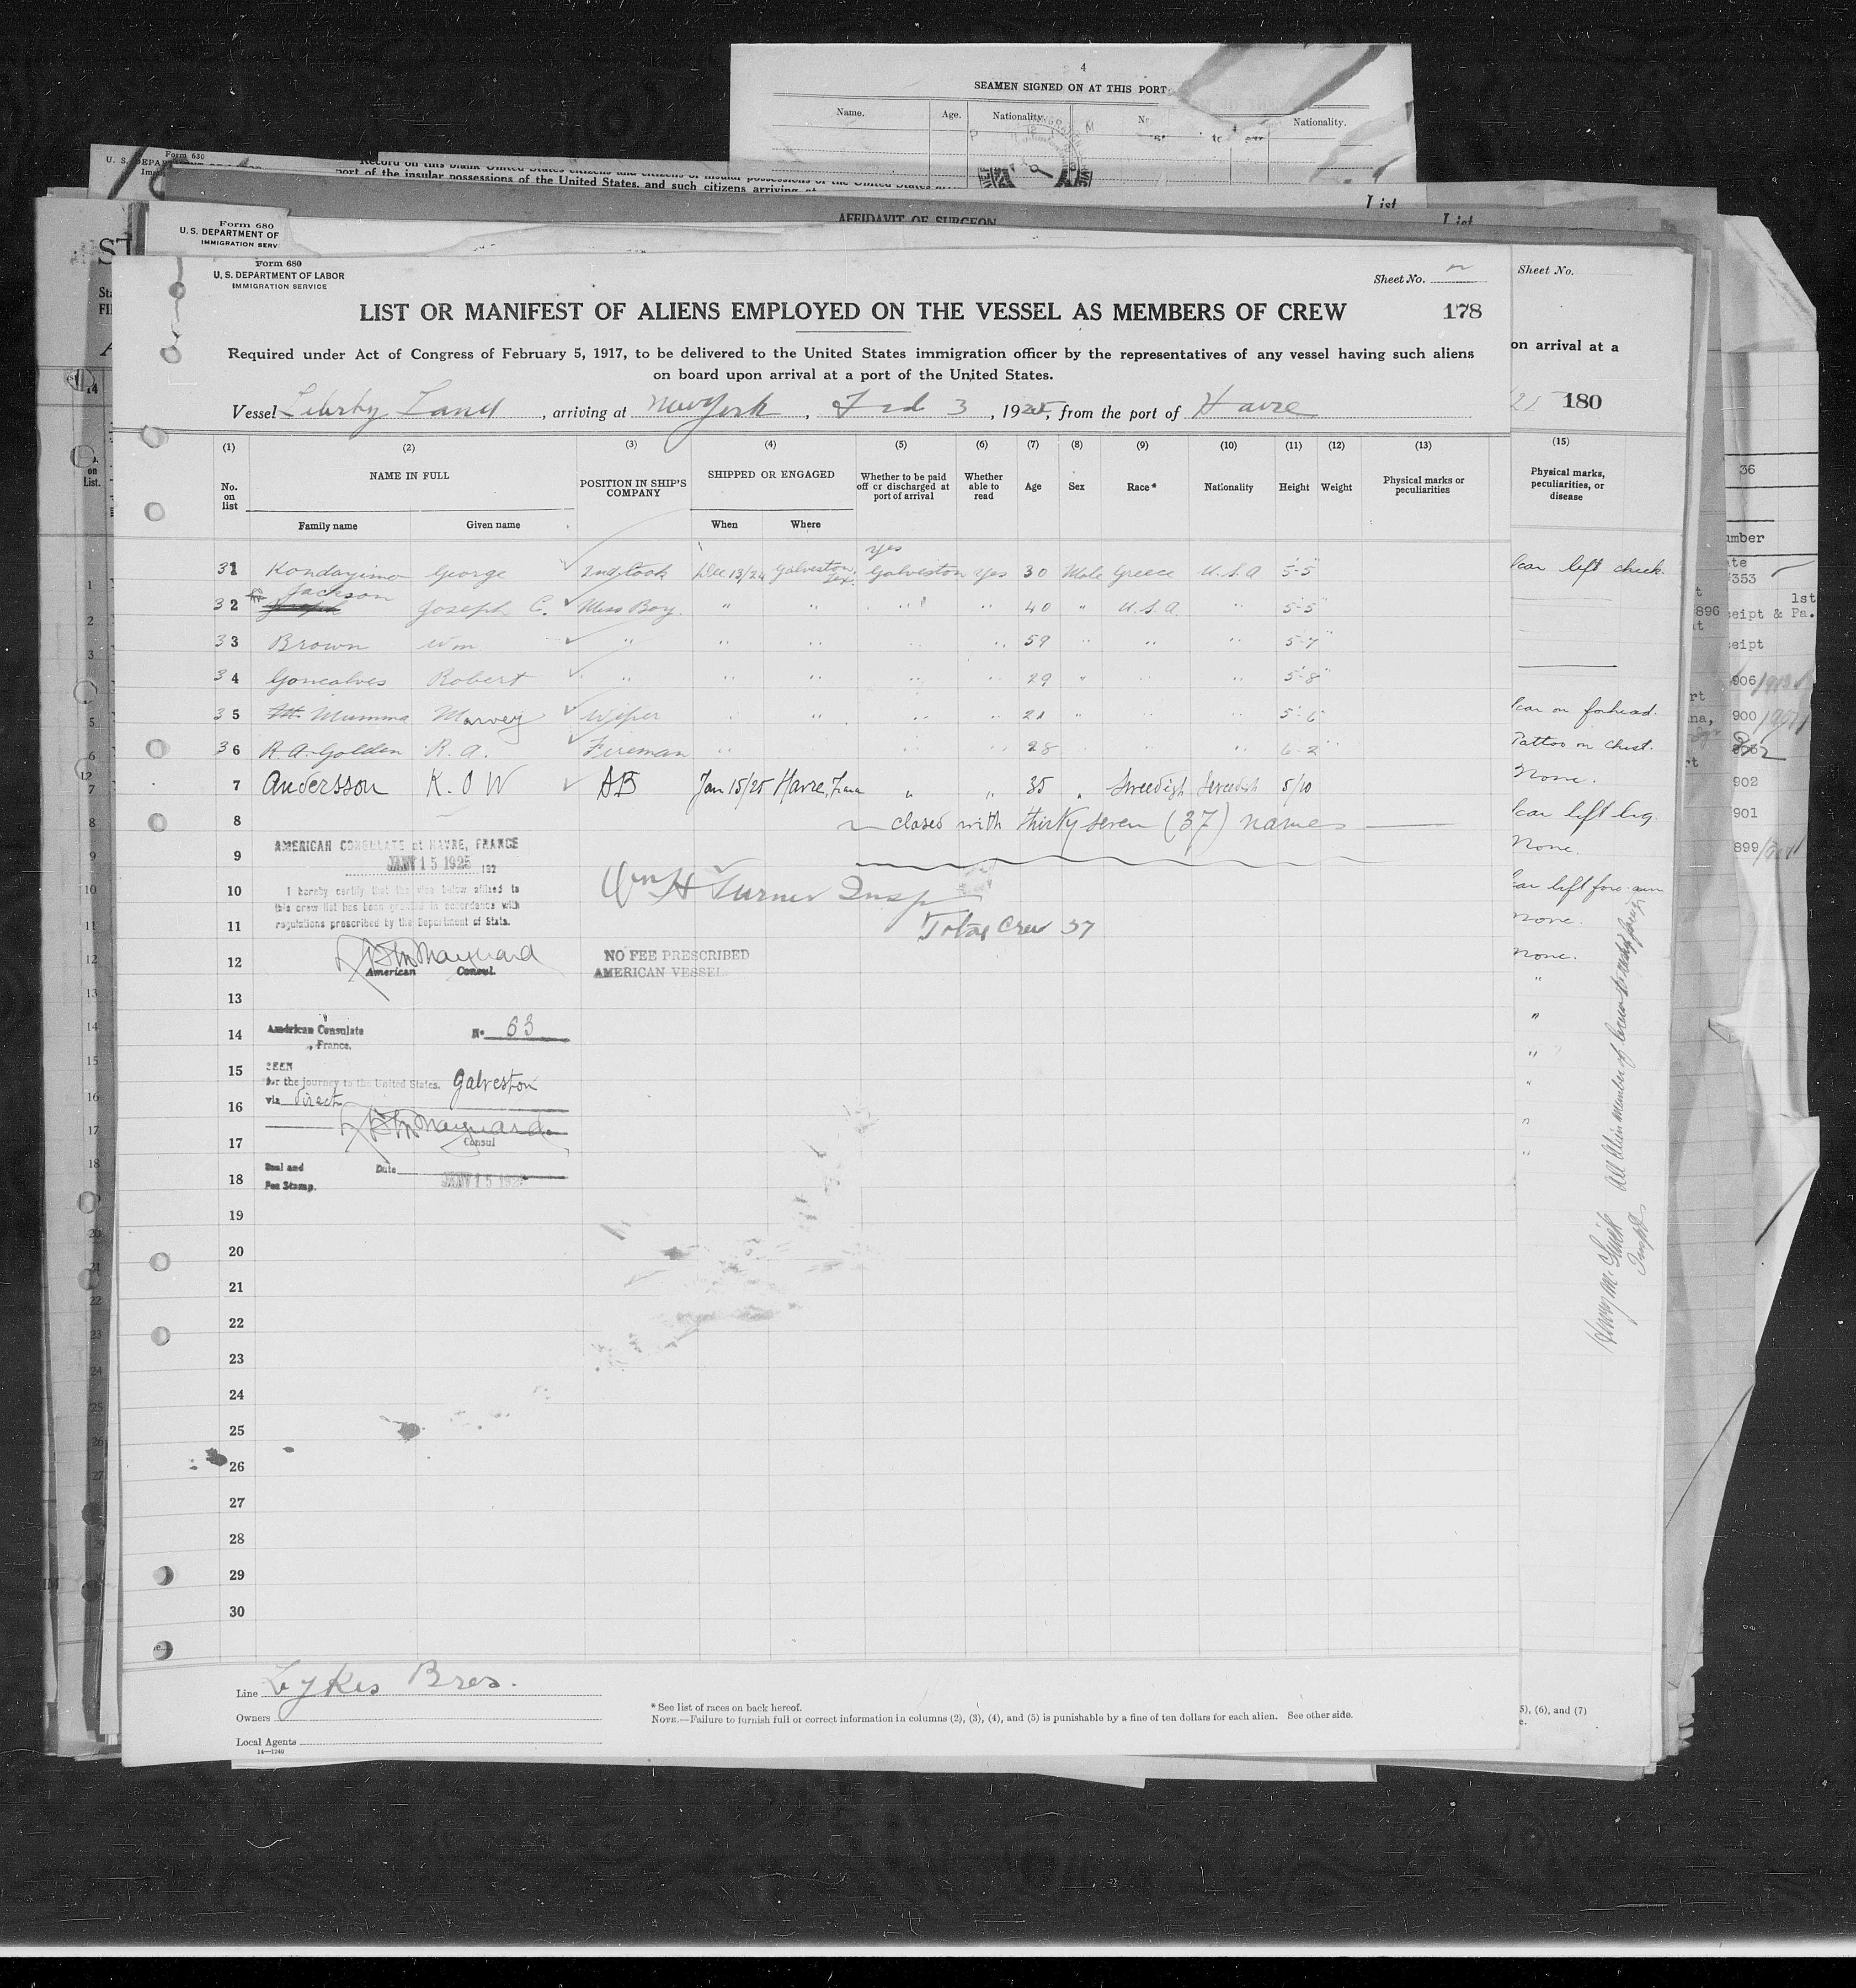 4
SEAMEN SIGNED ON AT THIS PORT
Name. Age. Nationality. Nationality.
Form 630
port of the insular possessions of the United States, and such citizens arriving
List List
AFFIDAVIT OF SURGEON
Form 680
U.S. DEPARTMENT OF
IMMIGRATION SERV
Form 680
U. S. DEPARTMENT OF LABOR
IMMIGRATION SERVICE
Sheet No.
Sheet No.
LIST OR MANIFEST OF ALIENS EMPLOYED ON THE VESSEL AS MEMBERS OF CREW 178
Required under Act of Congress of February 5, 1917, to be delivered to the United States immigration officer by the representatives of any vessel having such aliens
on board upon arrival at a port of the United States.
on arrival at a
Vessel Liberty Land, arriving at New York, 3, 1925, from the port of Havre
180
(1) (2) (3) (4) (5) (6) (7) (8) (9) (10) (11) (12) (13) (15)
No. on list
NAME IN FULL
Family name Given name
POSITION IN SHIP'S COMPANY
SHIPPED OR ENGAGED
When Where
Whether to be paid off or discharged at port of arrival
Whether able to read
Age Sex Race* Nationality Height Weight
Physical marks or peculiarities
Physical marks, peculiarities, or disease
yes
31 Kondayimo George 2nd Cook Dec 13/24 Galveston, Tex. Galveston yes 30 Male Greece U.S.A 5-5
Jackson
32 Joseph Joseph C. Mess Boy " " " " 40 " U.S.A. " 5-5
33 Brown Wm " " " " 59 " " " 5-7
34 Goncalves Robert " " " " " 29 " " " 5-8
35 Mumma Marvey Wiper " " " " 21 " " 5-6
36 R.A. Golden R. A. Fireman " " " 28 " " 6-2
7 Andersson K. O W AB Jan 15/25 Havre, " " 35 " Swedish Swedish 5/10
8 closed with thirty seven (37) names
9
10
11
12
13
14
15
16
17
18
19
20
21
22
23
24
25
26
27
28
29
30
AMERICAN CONSULATE at HAVRE, FRANCE
JANY 15 1925 192
I hereby certify that the visa below affixed to
this crew list has been granted in accordance with
regulations prescribed by the Department of State.
American Consul.
Wm H Turner Insp
Total Crew 37
NO FEE PRESCRIBED
AMERICAN VESSEL
American Consulate No 63
, France.
SEEN
for the journey to the United States. Galveston
via direct
Consul
Seal and
Fee Stamp.
Date JANY 15 1925
Scar left cheek.
Scar on forhead.
Tattoo on chest.
None.
Scar left leg.
None.
Scar left fore arm
None.
None.
36
353
1st
896
906
900
902
901
899
Line Lykes Bros.
Owners
Local Agents
14—1240
* See list of races on back hereof.
NOTE.—Failure to furnish full or correct information in columns (2), (3), (4), and (5) is punishable by a fine of ten dollars for each alien. See other side.
5), (6), and (7)